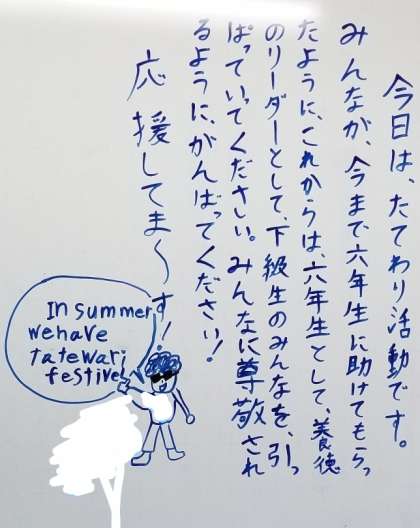 今日は、たてわり活動です。
みんなが、今まで六年生に助けてもらっ
たように、これからは、六年生として、美徳
のリーダーとして、下級生のみんなを、引っ
ぱっていってください。みんなに尊敬され
るように、がんばってください!
応援してま〜す!
In summer,
we have
tatewari
festival